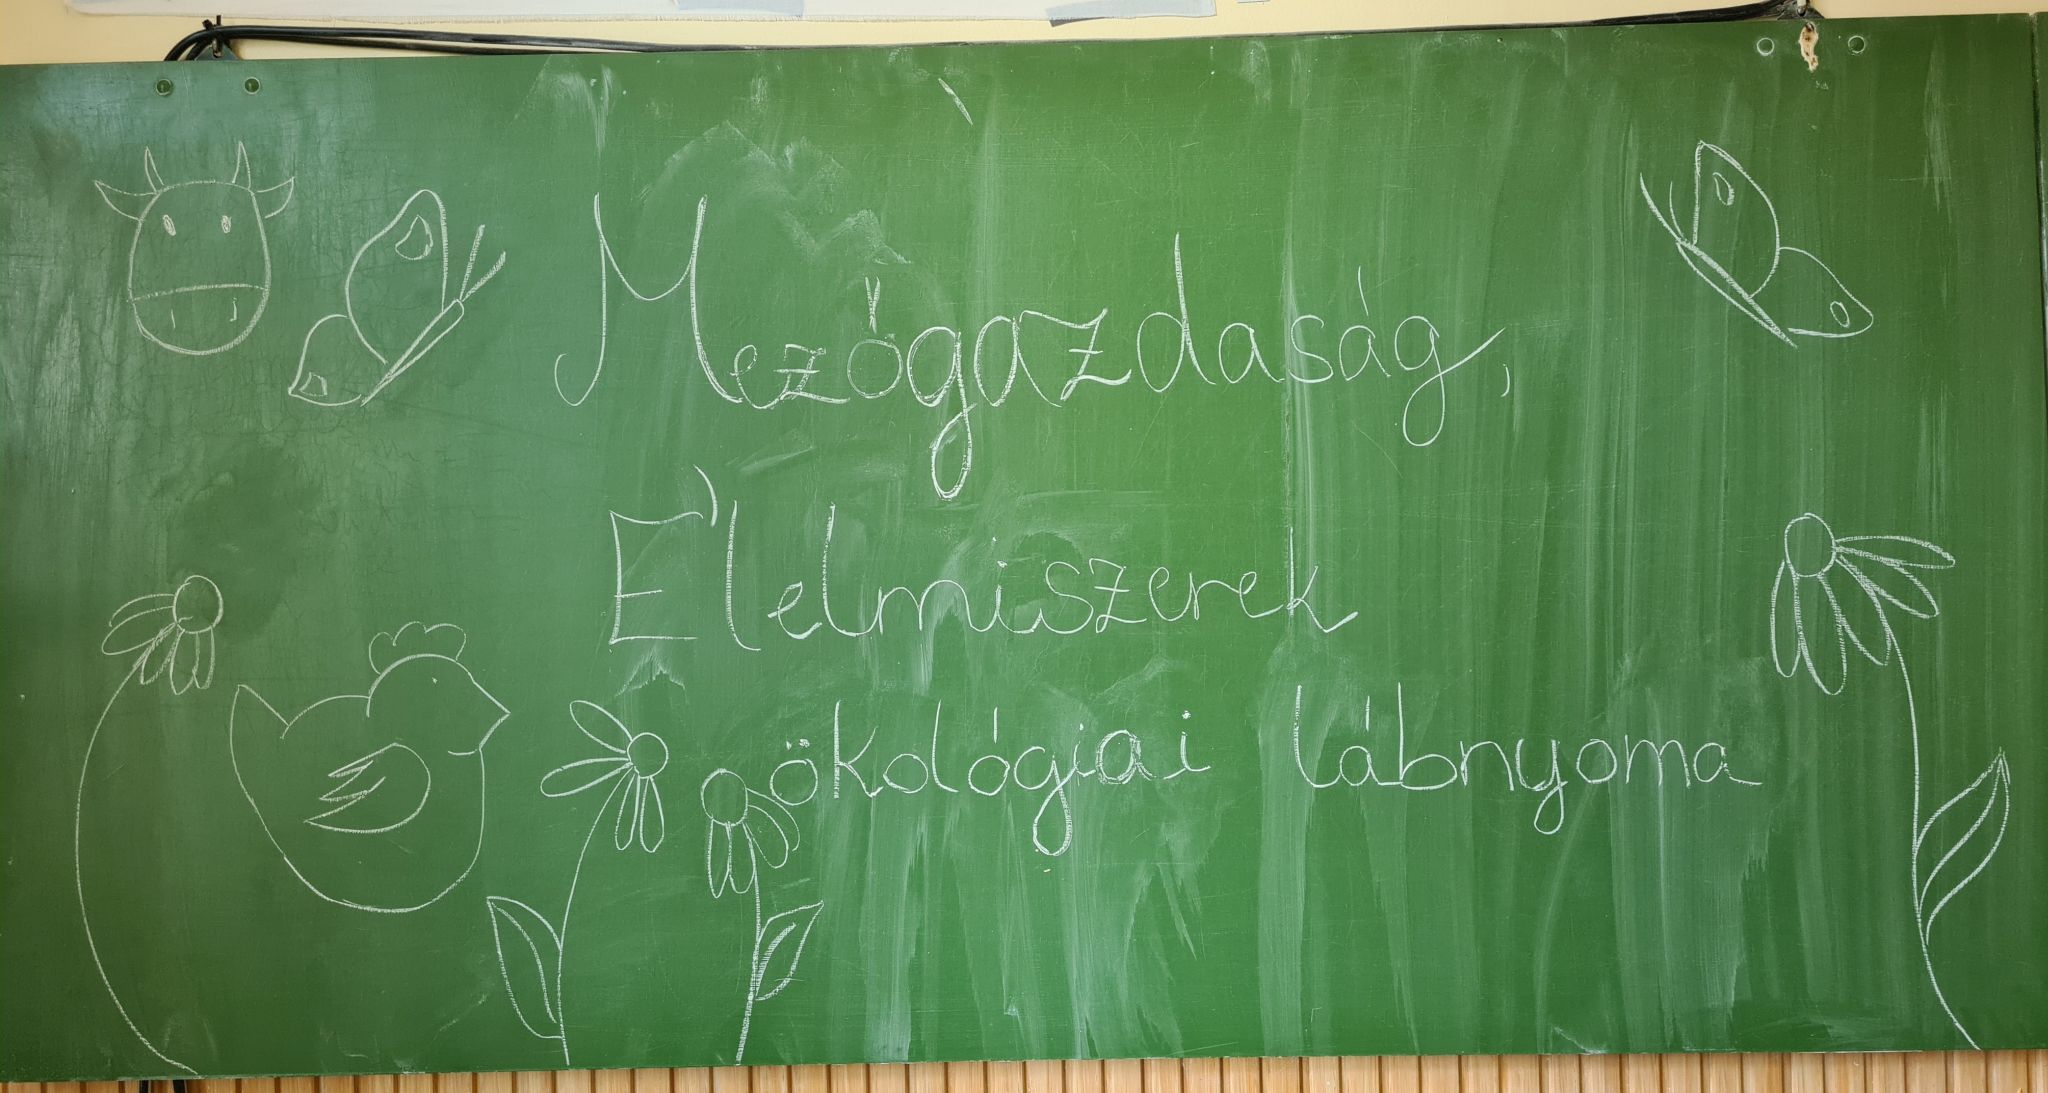 Mezőgazdaság,
Élelmiszerek
ökológiai lábnyoma